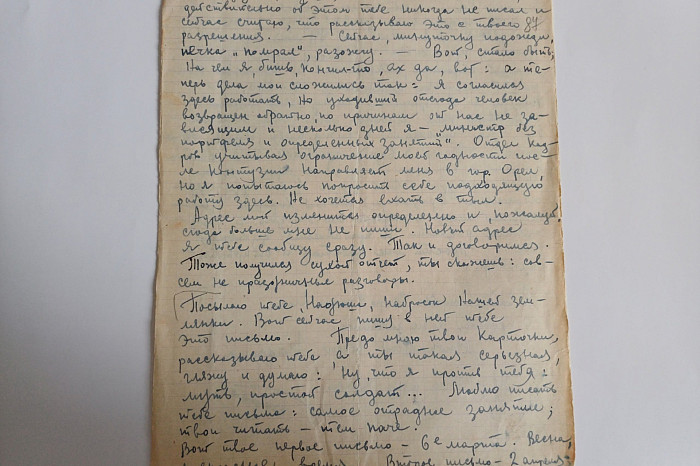 действительно об этом тебе никогда не писал и
сейчас считаю, что рассказываю это с твоего
разрешения. — Сейчас, минуточку подожди,
печка "помрал", разожгу. — Вот, стало быть,
На чем я, бишь, кончил-то, ах да, вот: а те-
перь дела мои сложились так: я согласился
здесь работать, но уходивший отсюда человек
возвращен обратно, по причинам от нас не за-
висящим и несколько дней я — "министр без
портфеля и определенных занятий". Отдел кад-
ров учитывая ограничение моей годности пос-
ле контузии направляет меня в гор. Орел,
но я попытаюсь попросить себе подходящую
работу здесь. Не хочется ехать в тыл.
Адрес мой изменится определенно и, пожалуй
сюда больше мне не пиши. Новый адрес
я тебе сообщу сразу. Так и договоримся.
Тоже получился сухой отчет, ты скажешь: сов-
сем не праздничные разговоры.
Посылаю тебе, Надюши, набросок нашей зем-
лянки. Вот сейчас пишу в ней тебе
это письмо. Предо мною твои карточки,
рассказываю тебе, а ты такая серьезная,
гляжу и думаю: ну, что я против тебя:
муть, простой солдат... Люблю писать
тебе письма: самое отрадное занятие;
твои читать — тем паче.
Вот твое первое письмо — 6е марта. Весна,
Второе письмо — 2 апреля